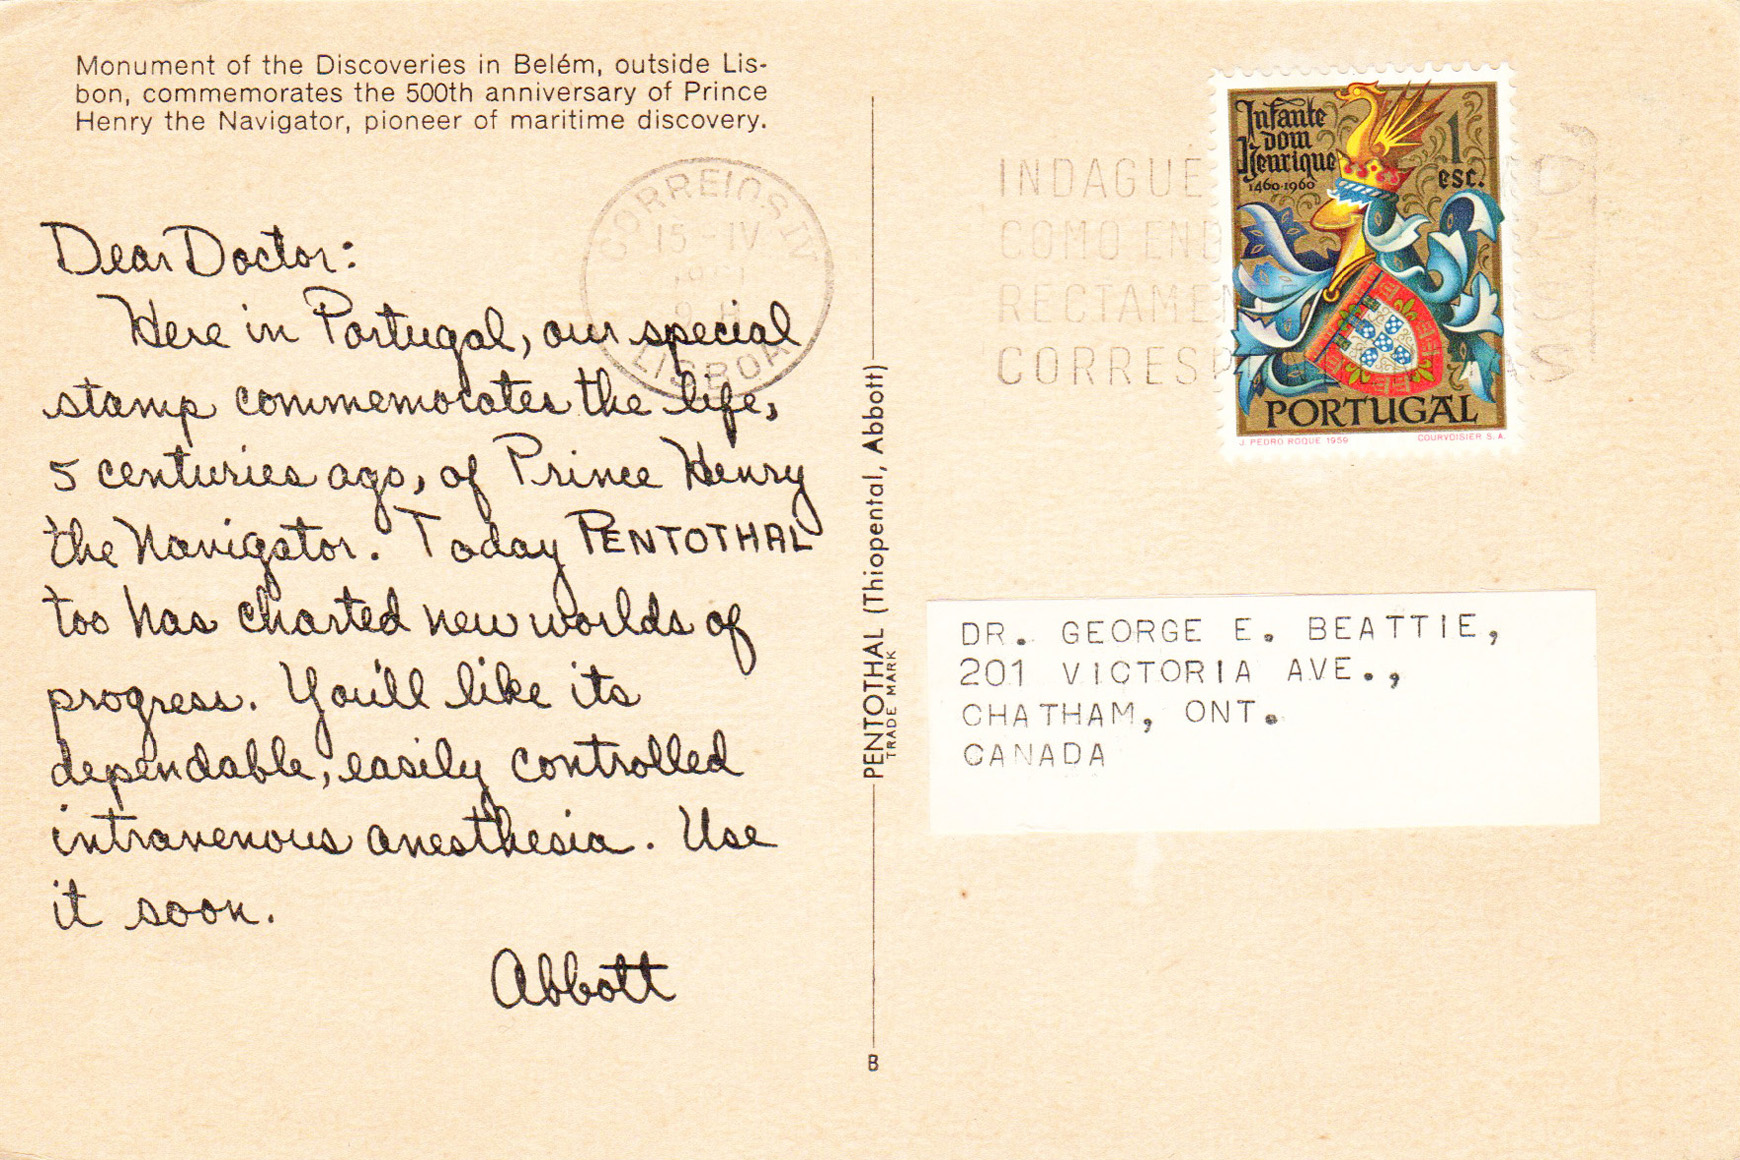 Monument of the Discoveries in Belém, outside Lis-
bon, commemorates the 500th anniversary of Prince
Henry the Navigator, pioneer of maritime discovery.
Dear Doctor:
Here in Portugal, our special
stamp commemorates the life,
5 centuries ago, of Prince Henry
the Navigator. Today PENTOTHAL
too has charted new worlds of
progress. You'll like its
dependable, easily controlled
intravenous anesthesia. Use
it soon.
Abbott
CORREIOS
15 IV
LISBOA
PENTOTHAL (Thiopental, Abbott)
TRADE MARK
B
INDAGUE
COMO
Infante
dom
Henrique
1460·1960
1
esc.
PORTUGAL
J. PEDRO ROQUE 1959 COURVOISIER S. A.
DR. GEORGE E. BEATTIE,
201 VICTORIA AVE.,
CHATHAM, ONT.
CANADA